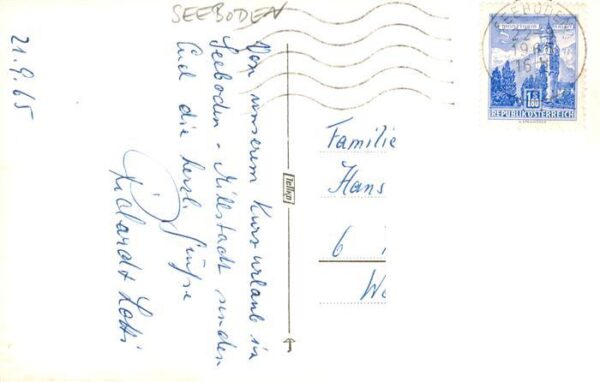 SEEBODEN
21.9.65
Von unserem Kurzurlaub in
Seeboden - Millstadt senden
Euch die herzl. Grüße
Richard + Lotti
Tellko
Familie
Hans
6
We
SEEBODEN
22
19
16
1.50
REPUBLIK ÖSTERREICH